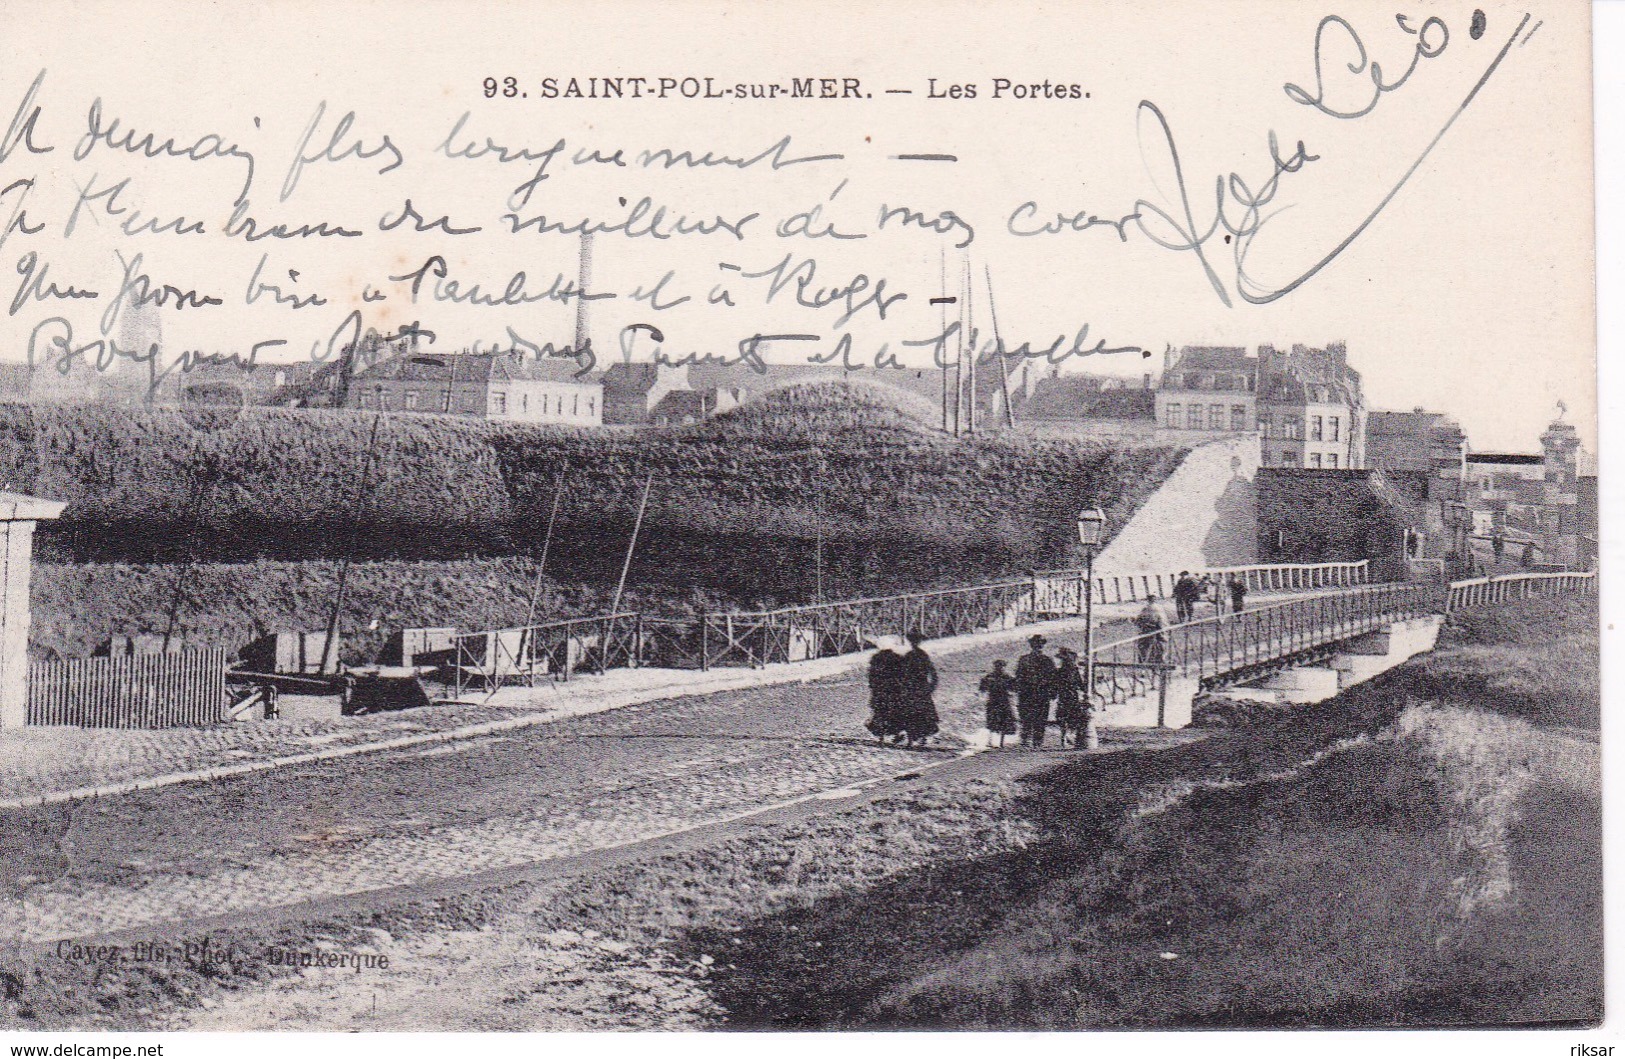 93. SAINT-POL-sur-MER. — Les Portes.
A demain plus longuement —
Je t'embrasse du meilleur de mon cœur
Une grosse bise à Paulette et à Roger —
Bonjour et à l'oncle.
Léo.
Cayez, fils, Phot. - Dunkerque
www.delcampe.net
riksar